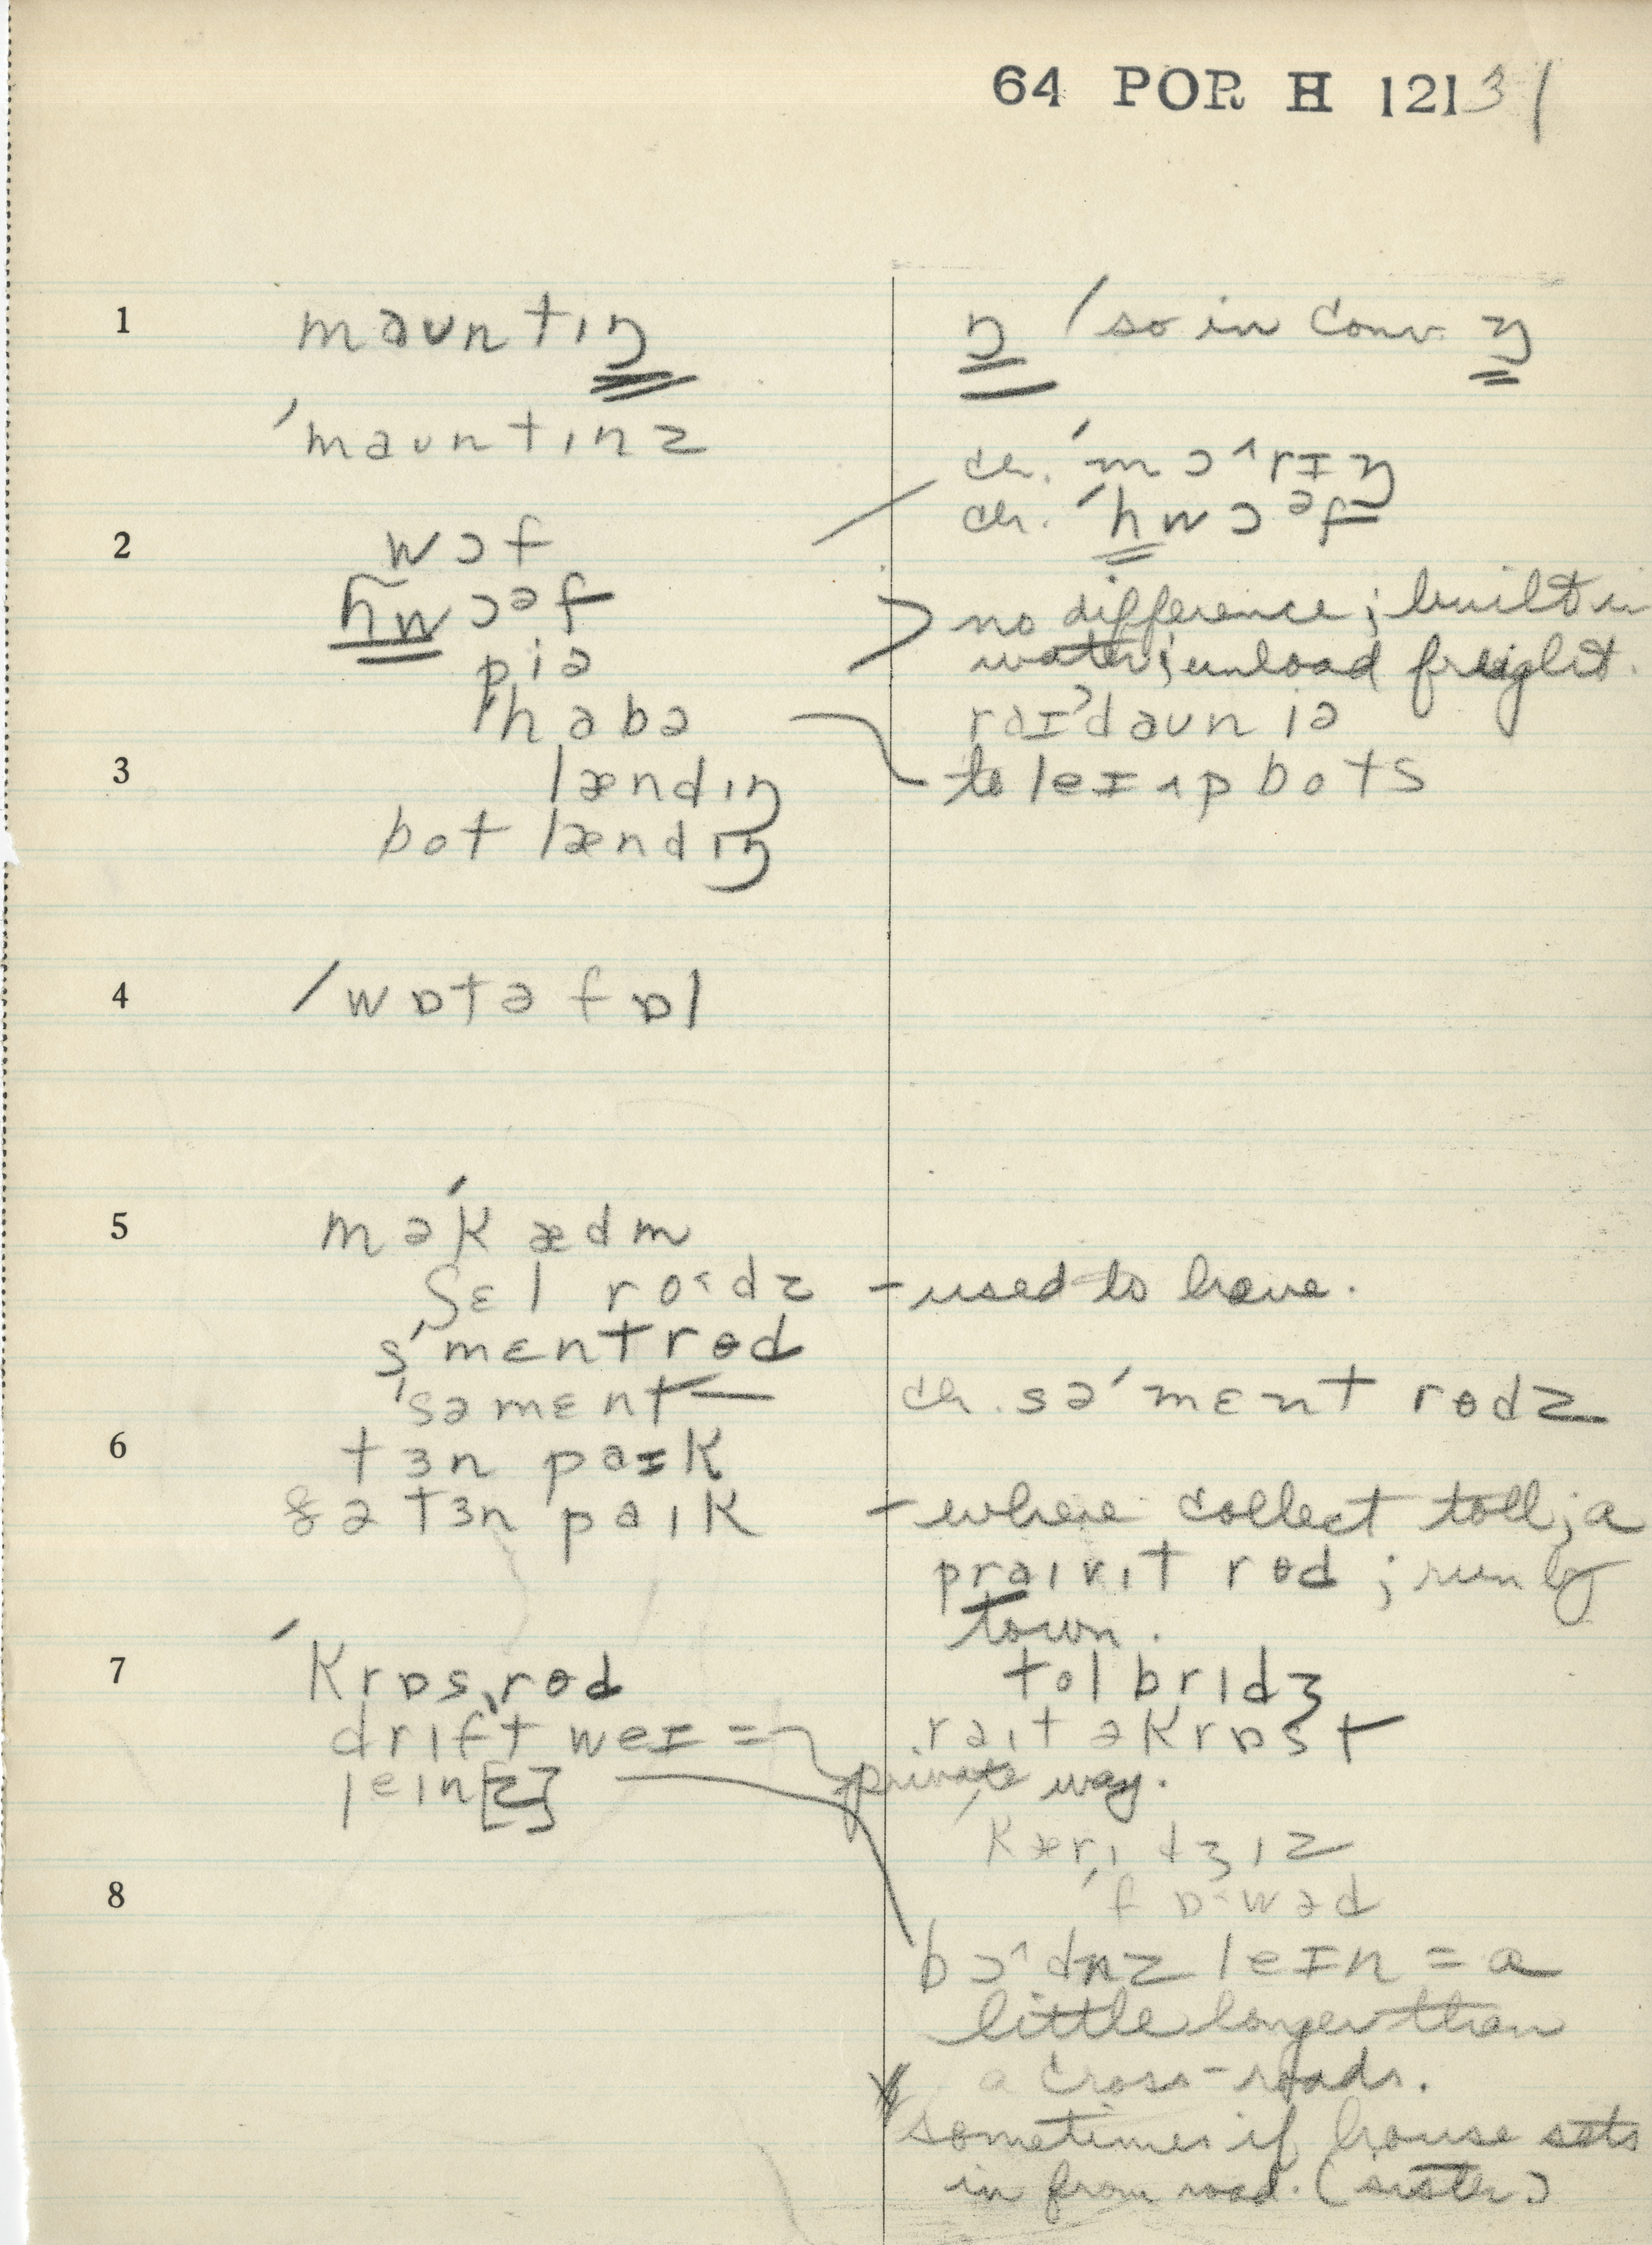 64 POR H 121 31
1 maʊntɪŋ ŋ / so in conv. ŋ
ˈmaʊntɪnz
ch. ˈmɔ^rɪŋ
ch. ˈhwɔəf
2 wɔf
hwɔəf
no difference; built in
piə
water; unload freight.
ˈhabə
raɪˈdaʊn iə
3 lændɪŋ
to leɪ ʌp bots
bot lændɪŋ
4 ˈwɒtə fɒl
5 məˈkædm
ʃɛl ro˂dz - used to have.
sˈmɛnt rɵd
ˈsəmɛnt—
ch. səˈmɛnt rɵdz
6 tɜn paɪk
ðə tɜn paɪk - where collect toll; a
praɪvɪt rɵd ; run by
town.
7 ˈkrɒsˌrɵd
tol brɪdʒ
drɪft weɪ =
raɪt əkrɒst
private way.
leɪn[z]
ˈkærɪdʒɪz
8 ˈfɒ˂wəd
bɔ^dnz leɪn = a
little longer than
a cross-roads.
sometimes if house sets
in from road. (sister)